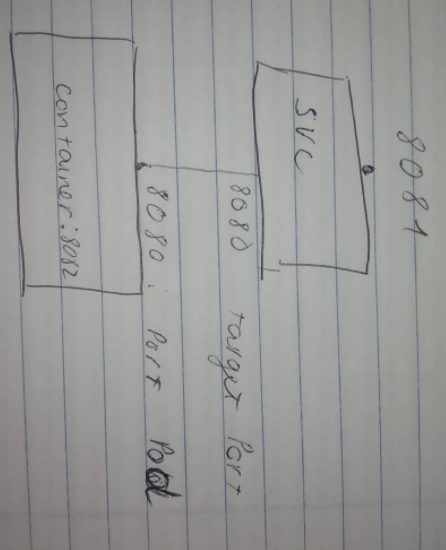 8081
SVC
8080 target Port
8080 : Port Pod
container:8082